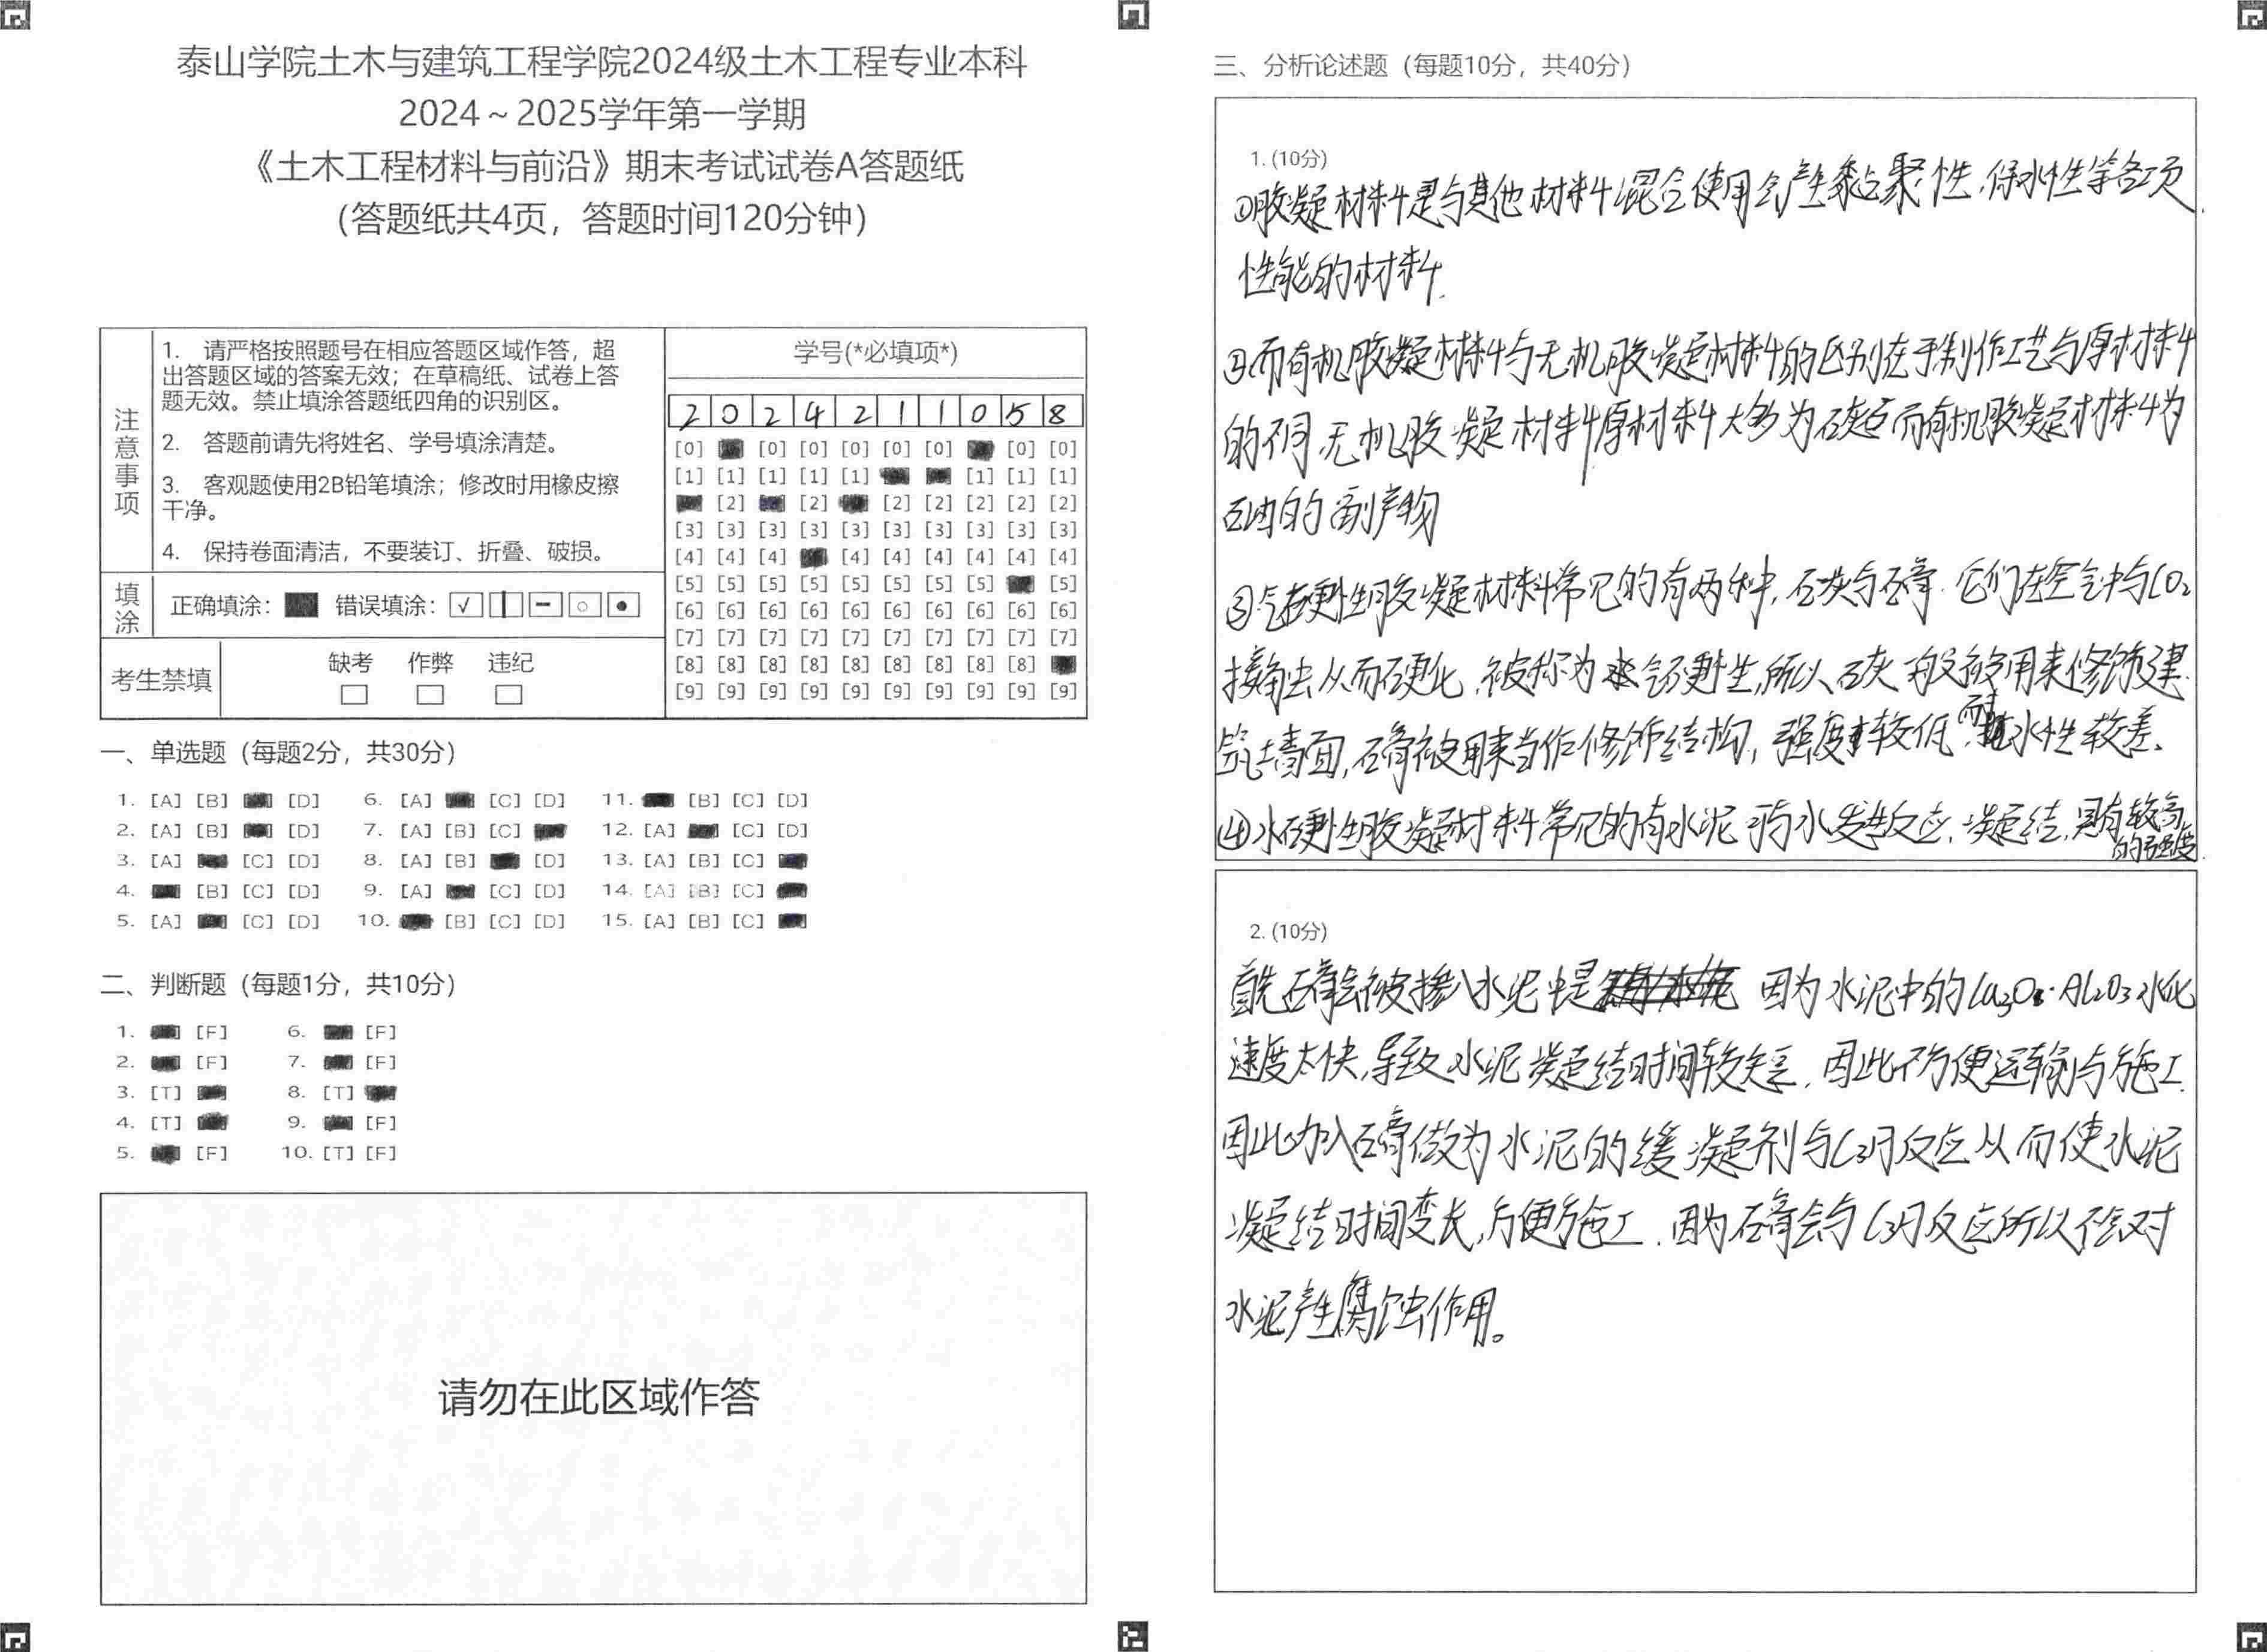 泰山学院土木与建筑工程学院2024级土木工程专业本科
2024～2025学年第一学期
《土木工程材料与前沿》期末考试试卷A答题纸
（答题纸共4页，答题时间120分钟）
注意事项
1. 请严格按照题号在相应答题区域作答，超
出答题区域的答案无效；在草稿纸、试卷上答
题无效。禁止填涂答题纸四角的识别区。
2. 答题前请先将姓名、学号填涂清楚。
3. 客观题使用2B铅笔填涂；修改时用橡皮擦
干净。
4. 保持卷面清洁，不要装订、折叠、破损。
填涂
正确填涂： 错误填涂：
考生禁填
缺考 作弊 违纪
学号(*必填项*)
2 0 2 4 2 1 1 0 5 8
[0] [0] [0] [0] [0] [0] [0] [0]
[1] [1] [1] [1] [1] [1] [1] [1]
[2] [2] [2] [2] [2] [2] [2]
[3] [3] [3] [3] [3] [3] [3] [3] [3] [3]
[4] [4] [4] [4] [4] [4] [4] [4] [4]
[5] [5] [5] [5] [5] [5] [5] [5] [5]
[6] [6] [6] [6] [6] [6] [6] [6] [6] [6]
[7] [7] [7] [7] [7] [7] [7] [7] [7] [7]
[8] [8] [8] [8] [8] [8] [8] [8] [8]
[9] [9] [9] [9] [9] [9] [9] [9] [9] [9]
一、单选题（每题2分，共30分）
1. [A] [B] [D] 6. [A] [C] [D] 11. [B] [C] [D]
2. [A] [B] [D] 7. [A] [B] [C] 12. [A] [C] [D]
3. [A] [C] [D] 8. [A] [B] [D] 13. [A] [B] [C]
4. [B] [C] [D] 9. [A] [C] [D] 14. [A] [B] [C]
5. [A] [C] [D] 10. [B] [C] [D] 15. [A] [B] [C]
二、判断题（每题1分，共10分）
1. [F] 6. [F]
2. [F] 7. [F]
3. [T] 8. [T]
4. [T] 9. [F]
5. [F] 10. [T] [F]
请勿在此区域作答
三、分析论述题（每题10分，共40分）
1. (10分)
①胶凝材料是与其他材料混合使用会产生黏聚性、保水性等各项
性能的材料.
②而有机胶凝材料与无机胶凝材料的区别在于制作工艺与原材料
的不同.无机胶凝材料原材料大多为石灰而有机胶凝材料为
石油的副产物
③气硬性胶凝材料常见的有两种,石灰与石膏.它们在空气中与CO₂
接触从而硬化,被称为气硬性,所以石灰一般被用来修饰建
筑墙面,石膏被用来当作修饰结构,强度较低,耐水性较差、
④水硬性胶凝材料常见的有水泥 可与水发生反应,凝结,具有较高
的强度
2. (10分)
首先石膏会被掺入水泥中是 因为水泥中的Ca₃O·Al₂O₃水化
速度太快,导致水泥凝结时间较短,因此不方便运输与施工
因此加入石膏做为水泥的缓凝剂与C₃A反应从而使水泥
凝结时间变长,方便施工.因为石膏会与C₃A反应所以不会对
水泥产生腐蚀作用。